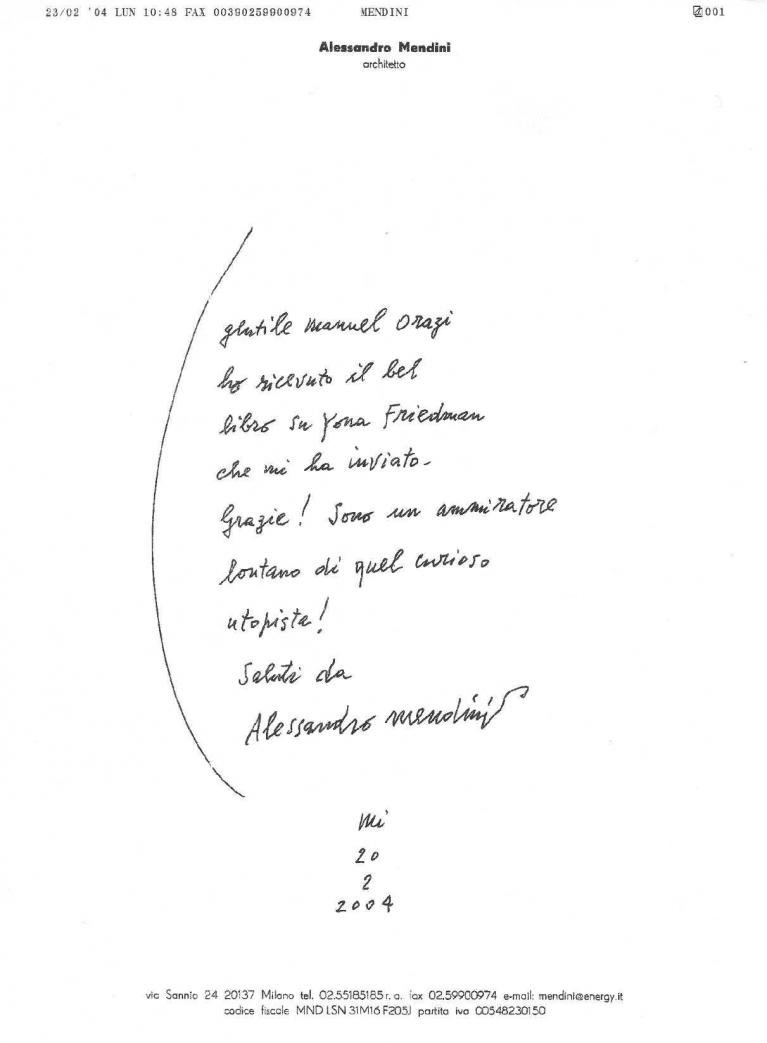 23/02 '04 LUN 10:48 FAX 00390259900974 MENDINI 001
Alessandro Mendini
architetto
gentile Manuel Orazi
ho ricevuto il bel
libro su Yona Friedman
che mi ha inviato-
Grazie! Sono un ammiratore
lontano di quel curioso
utopista!
Saluti da
Alessandro Mendini
Mi
20
2
2004
via Sannio 24 20137 Milano tel. 02.55185185 r. a. fax 02.59900974 e-mail: mendini@energy.it
codice fiscale MND LSN 31M16 F205J partita iva 00548230150